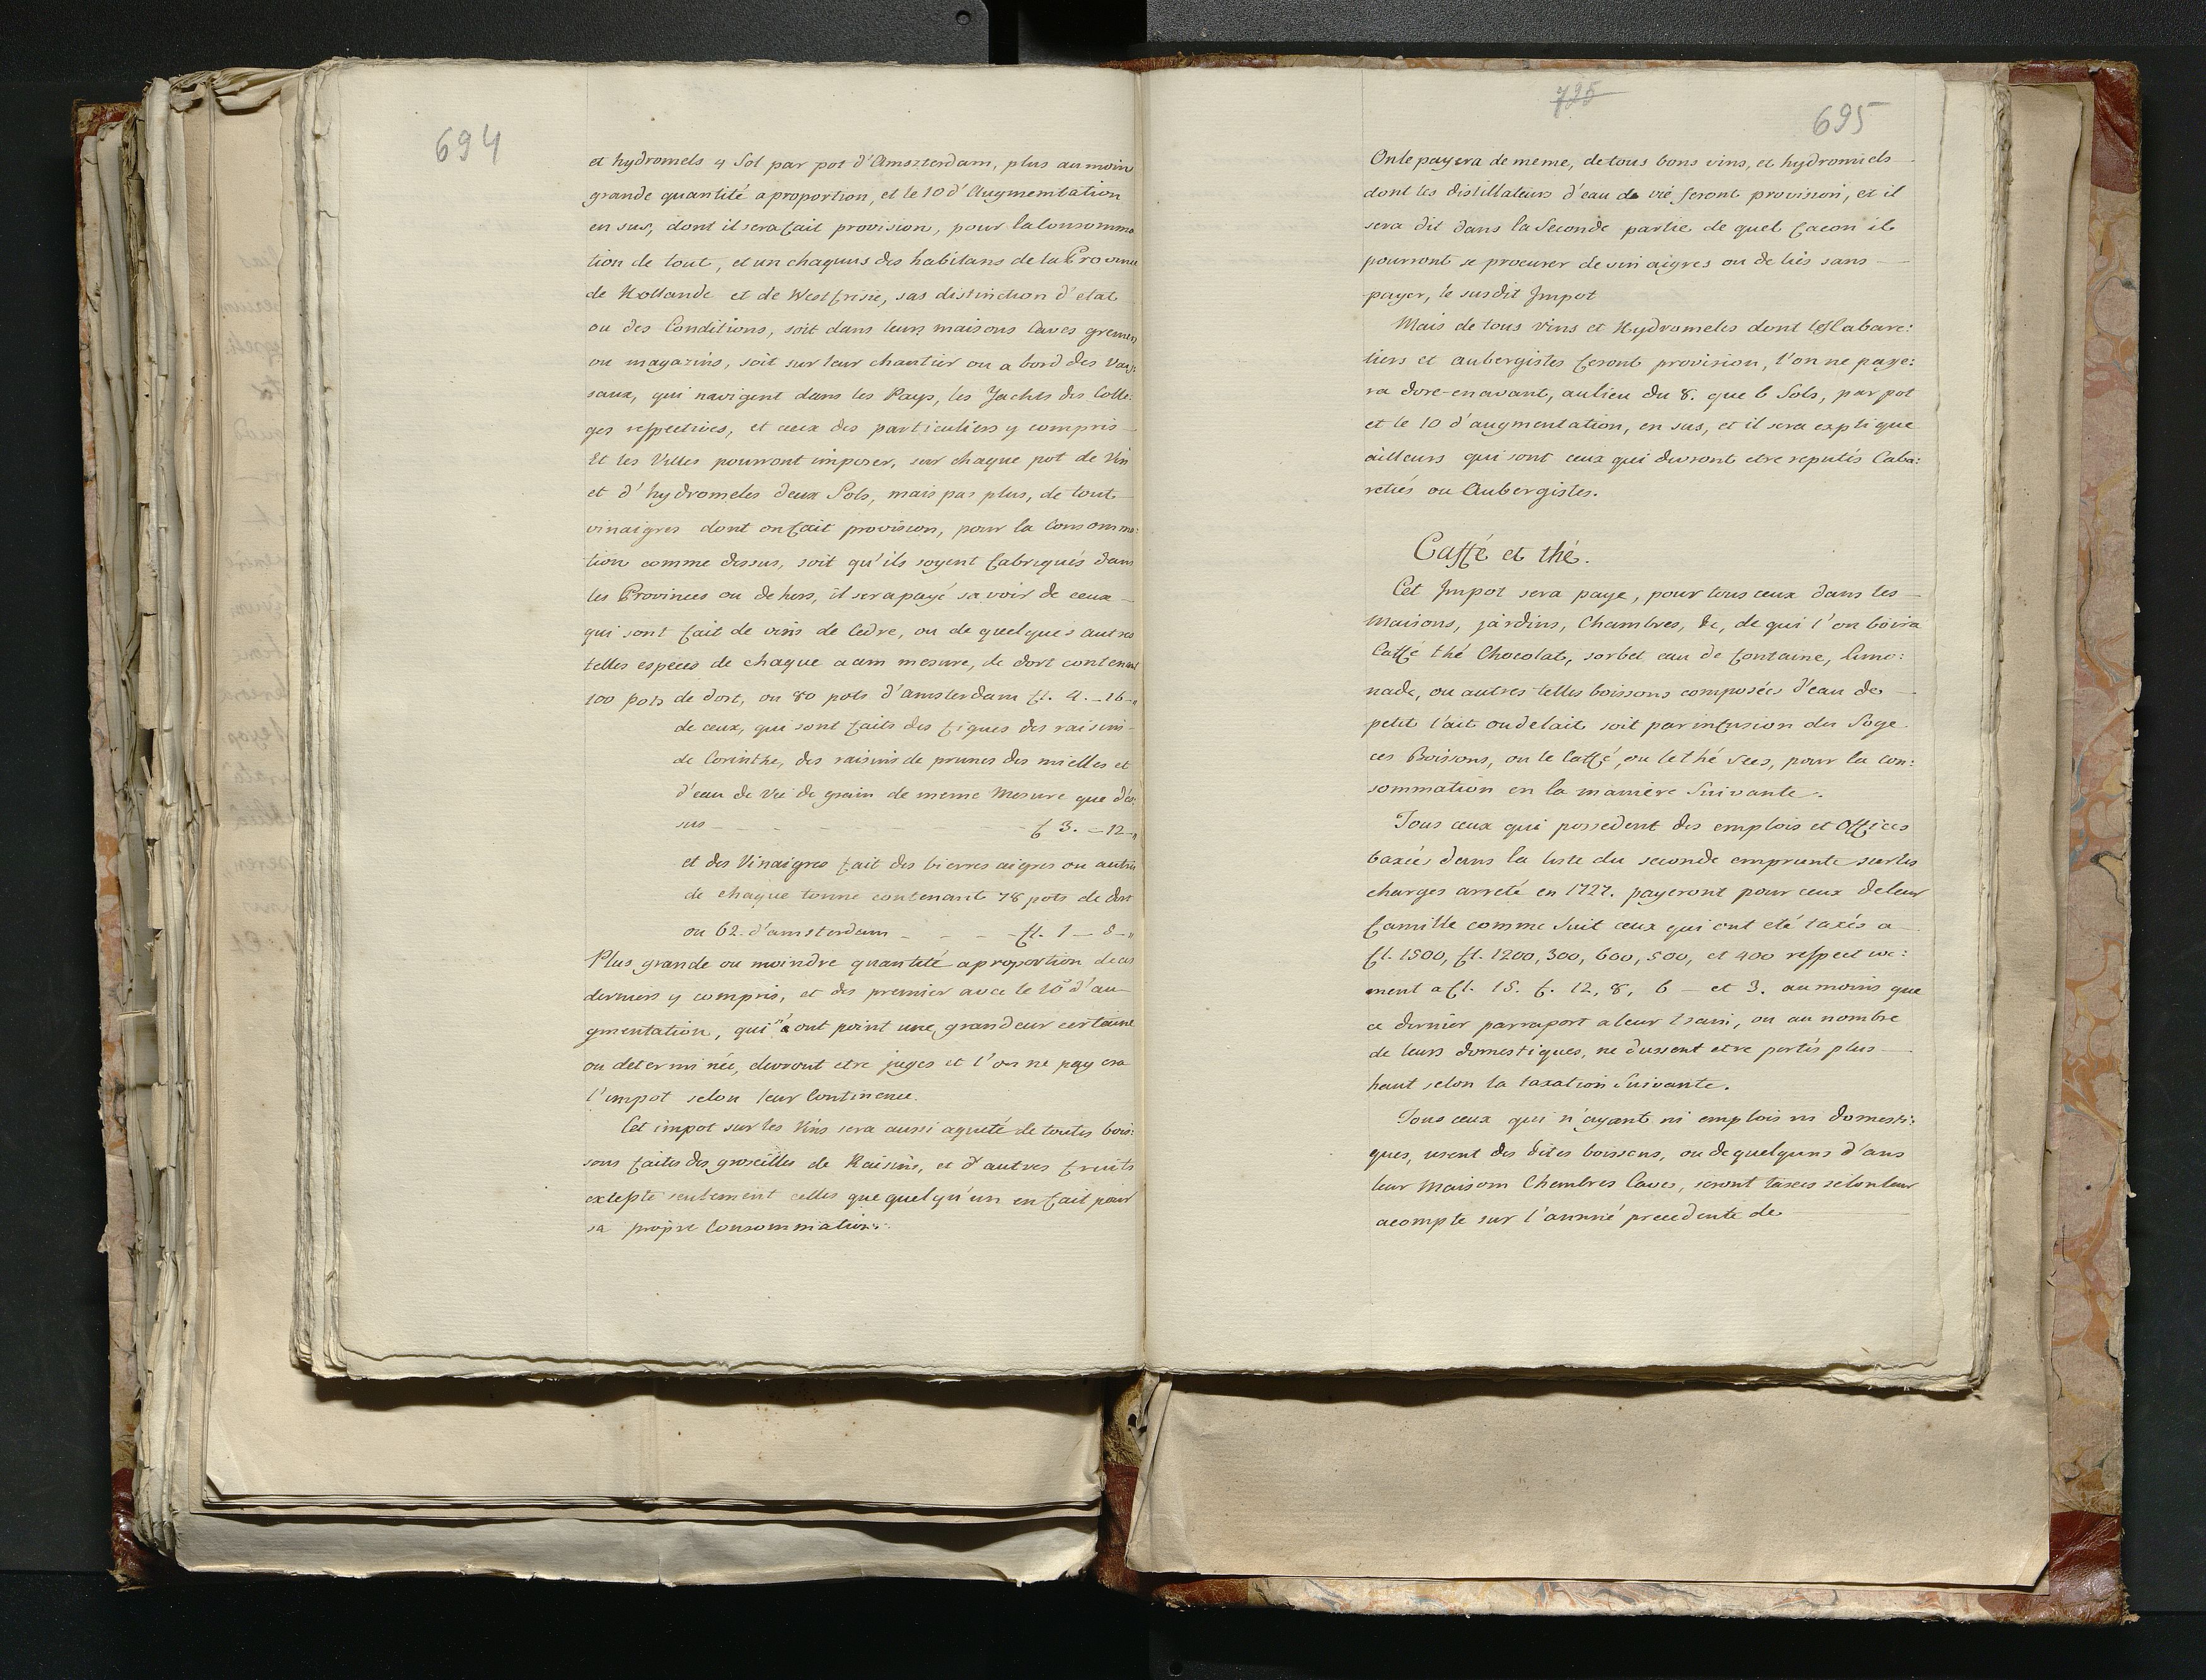 694
et hydromels 4 Sol par pot d'Amszterdam, plus au moin
grande quantité a proportion, et le 10 d'Augmentation
en sus, dont il sera fait provision, pour la Consomma
tion de tout, et un chaquns des habitans de la Province
de Hollande et de Westfrisie, sas distinction d'etat
ou des Conditions, soit dans leurs maisons Caves greniers
ou magazins, soit sur leur chantier ou a bord des Vais:
saux, qui navigent dans les Pays, les Jachts des Colle:
ges respectives, et ceux des particuliers y compris
Et les Villes pourront imposer, sur chaque pot de Vin
et d'hydromeles deux Sols, mais pas plus, de tout
vinaigres dont on fait provision, pour la Consomma:
tion comme dessus, soit qu'ils soyent fabriqués dans
les Provinces ou dehors, il sera payé savoir de ceux
qui sont fait de vins de Cedre, ou de quelques autres
telles especes de chaque aam mesure, de dort contenant
100 pots de dort, ou 80 pots d'amsterdam fl. 4. - 16 -"
de ceux, qui sont faits des figues des raisins
de Corinthe, des raisins de prunes des mielles et
d'eau de vie de grain de meme Mesure que des:
sus - - - - - f 3. - 12 -"
et des Vinaigres fait des bierres aigres ou autres
de chaque tonne contenant 78 pots de dort
ou 62 d'amsterdam - - - fl. 1 - 8 -"
Plus grande ou moindre quantité a proportion de ces
derniers y compris, et des premier avec le 10e d'au
gmentation, qui n'ont point une, grandeur certaine
ou determinée, devront etre juges et l'on ne payera
l'impot selon leur Continence.
Cet impot sur les Vins sera aussi aquité de toutes bois:
sons faites des groseilles de Raisins, et d'autres fruits
exlepte seulement celles que quelqu'un en fait pour
sa propre Consommation.
725
695
On le payera de meme, de tous bons vins, et hydromiels
dont les distillateurs d'eau de vie feront provision, et il
sera dit dans la Seconde partie de quel facon ils
pourront se procurer de vin aigres ou de liés sans
payer, le susdit Jmpot
Mais de tous vins et Hydromeles dont les Cabare:
tiers et aubergistes feront provision, l'on ne paye:
ra dore-enavant, au lieu du 8. que 6 Sols, par pot
et le 10 d'augmentation, en sus, et il sera explique
ailleurs qui sont ceux qui devront etre reputés Caba:
retiés ou Aubergistes.
Caffé et thé.
Cet Jmpot sera paye, pour tous ceux dans les
Maisons, jardins, Chambres, &c, de qui l'on boira
Caffé thé Chocolat, sorbet eau de fontaine, limo:
nade, ou autres telles boissons composées d'eau de
petit lait ou de lait soit par infusion du Soge
ces Boissons, ou le Caffé, ou le thé secs, pour la con:
sommation en la maniere Suivante.
Tous ceux qui possedent des emplois et Offices
taxées dans la liste du seconde emprunte sur les
charges arreté en 1727. payeront pour ceux de leur
famille comme Suit ceux qui ont eté taxés a
fl. 1500, fl. 1200, 300, 600, 500, et 400 respective:
ment a fl. 15. f. 12, 8, 6 - et 3. au moins que
ce dernier par raport a leur train, ou au nombre
de leurs domestiques, ne dussent etre portés plus
haut selon la taxation Suivante.
Tous ceux qui n'ayant ni emplois ni domesti:
ques, usent des dites boissons, ou de quelquns d'ans
leur Maisom Chembres Caves, seront taxees selon leur
acompte sur l'année precedente de